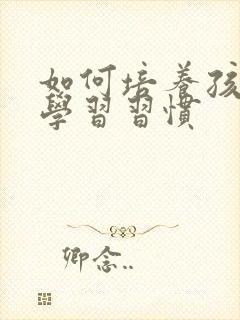 如何培养孩
學習習慣
卿念..